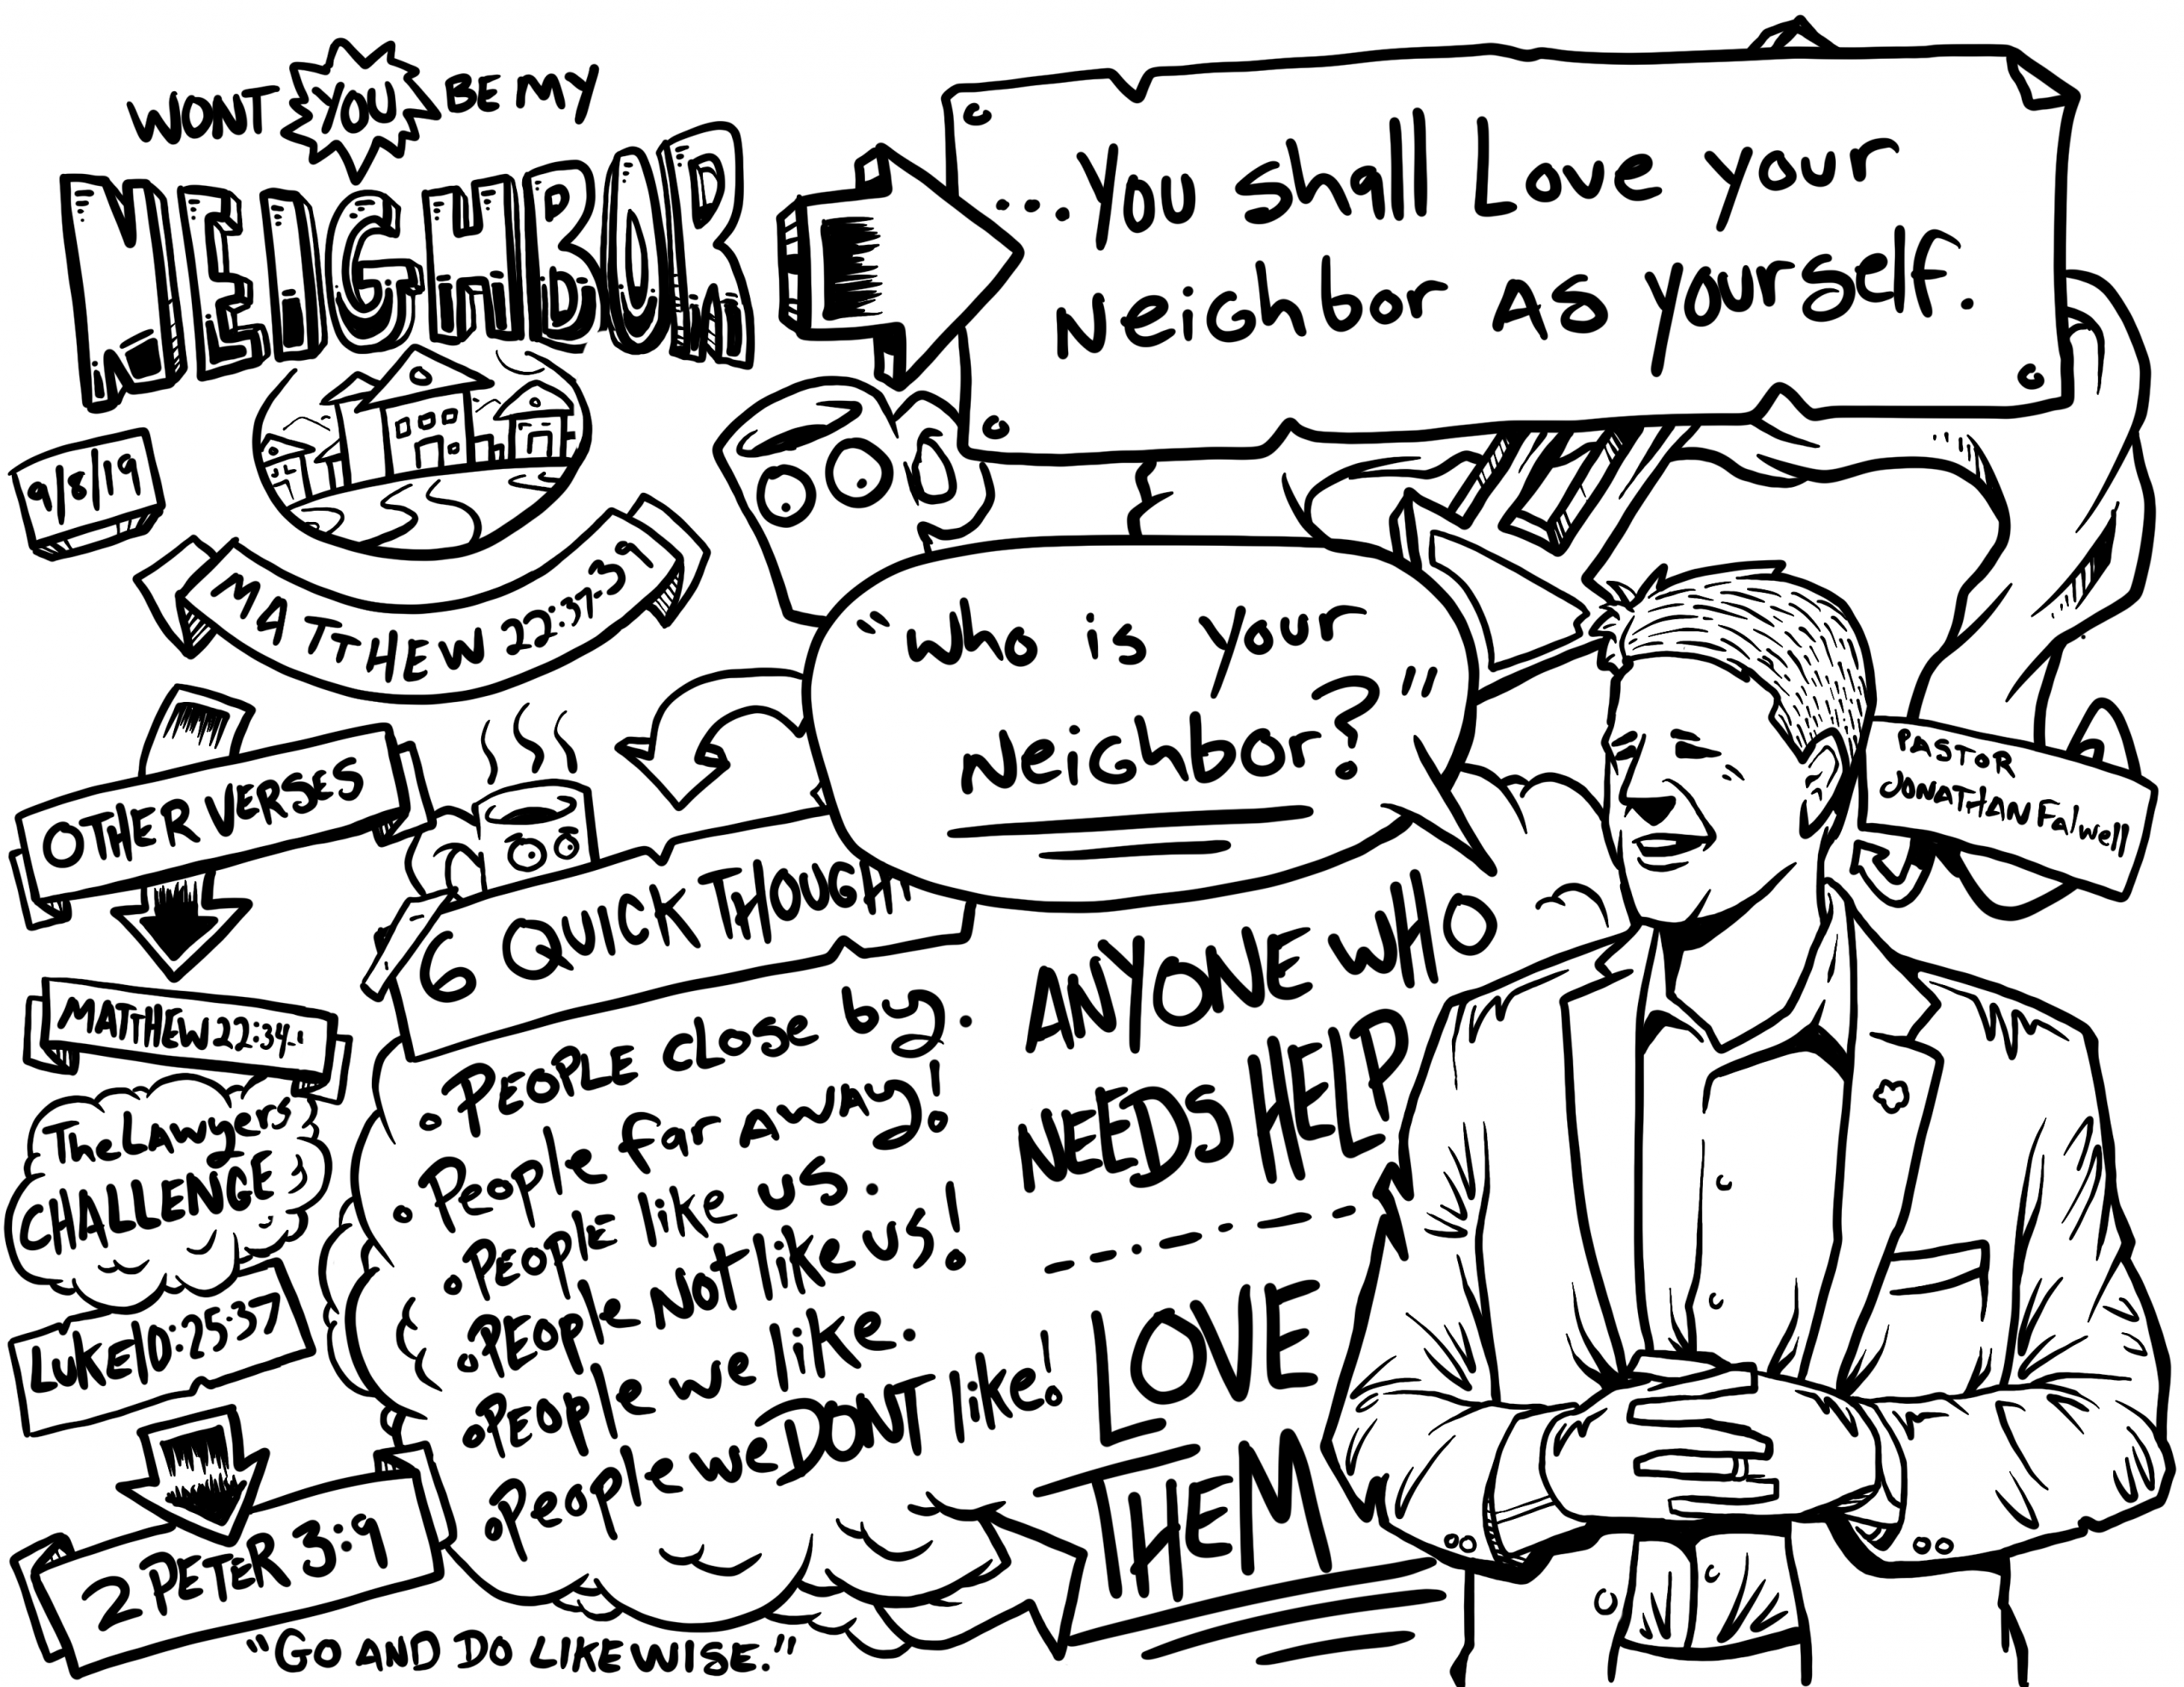 WONT YOU BE MY
NEIGHBOR
...You shall Love your
Neighbor As yourself.
9/8/19
MATTHEW 22:37-39
"Who is your
Neighbor?"
PASTOR
JONATHAN Falwell
OTHER VERSES
MATTHEW 22:34-
The Lawyers
CHALLENGE
LUKE 10:25-37
2 PETER 3:9
"GO AND DO LIKEWISE."
6 QUICK THOUGHT
• PEOPLE CLOSE by.
• People far away!
• PEOPLE like us.
• PEOPle Not like us!
• PEOPle we like.
• People we DONT like!
ANYONE WHO
NEEDS HELP
LOVE
THEM